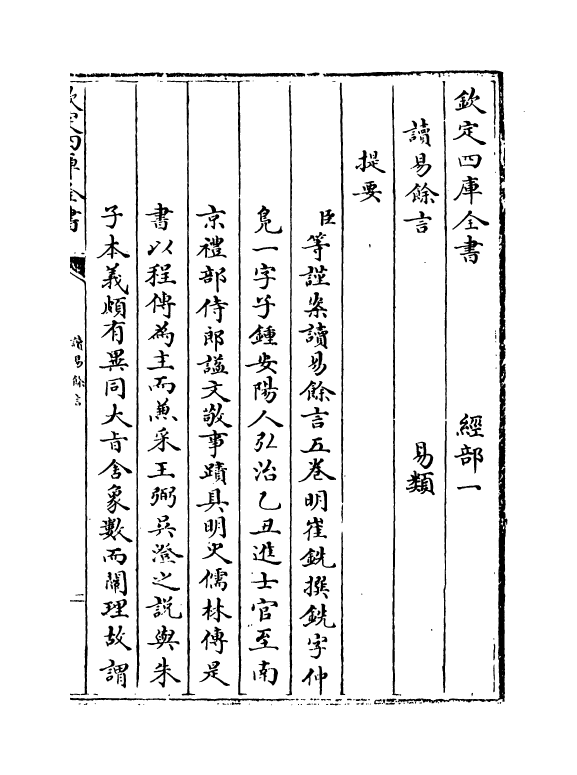 欽定四庫全書　經部一
讀易餘言　易類
提要
臣等謹案讀易餘言五卷明崔銑撰銑字仲
鳬一字子鍾安陽人弘治乙丑進士官至南
京禮部侍郎諡文敏事蹟具明史儒林傳是
書以程傳為主而兼采王弼吳澄之說與朱
子本義頗有異同大旨舍象數而闡理故謂
欽定四庫全書
讀易餘言
一